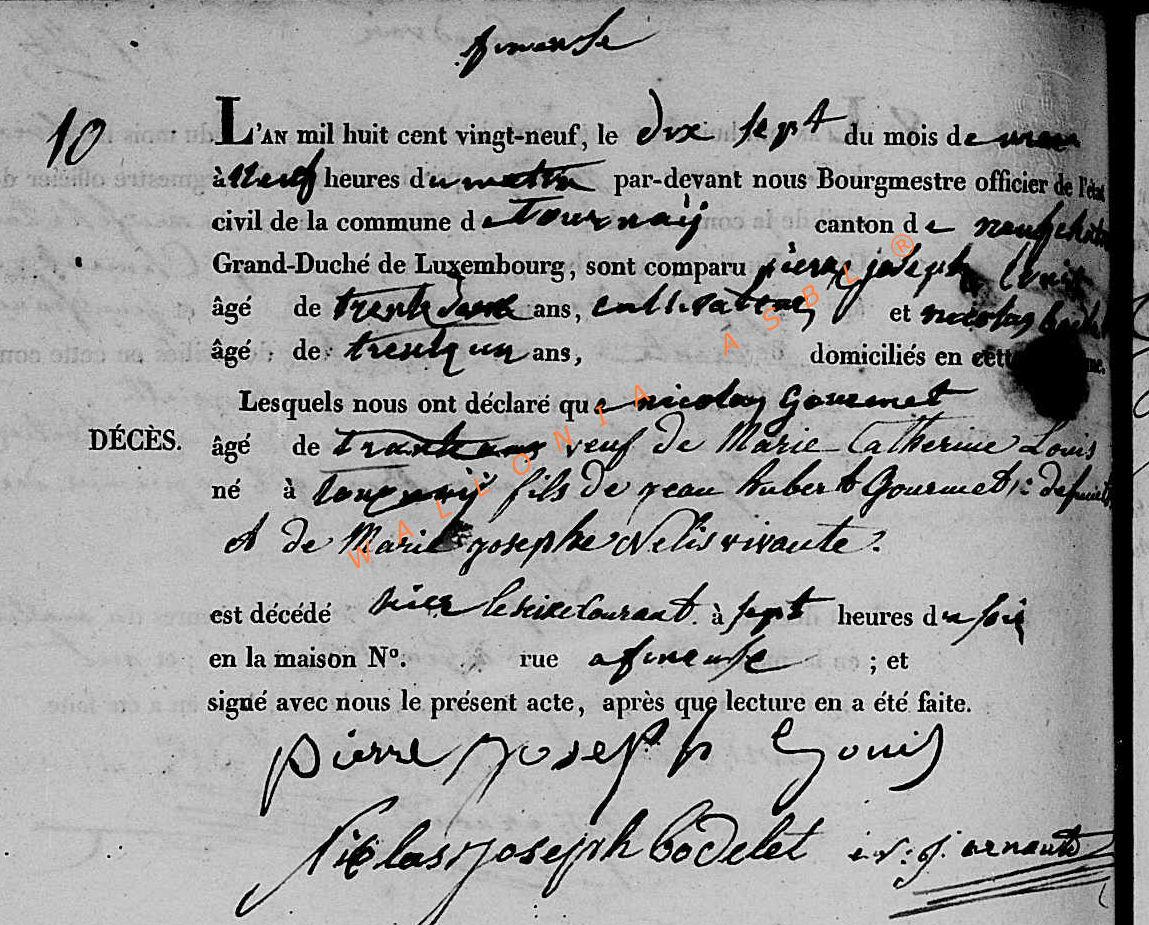 fineuse
10
L'AN mil huit cent vingt-neuf, le dix sept du mois de mars
à neuf heures du matin par-devant nous Bourgmestre officier de l'état
civil de la commune de tournaÿ canton de neufchateau
Grand-Duché de Luxembourg, sont comparu pierre joseph louis
âgé de trente deux ans, cultivateur et nicolas
âgé de ans, domiciliés en
Lesquels nous ont déclaré que nicolas Gourmet
DÉCÈS. âgé de veuf de Marie Catherine Louis
né à fils de jean hubert Gourmet, : defunt
et de Marie josephe Nelis vivante.
est décédé hier le seize Courant. à sept heures du soir
en la maison Nº. rue a fineuse ; et
signé avec nous le présent acte, après que lecture en a été faite.
pierre joseph Louis
Nicolas joseph Bodelet arnould
WALLONIA ASBL ®